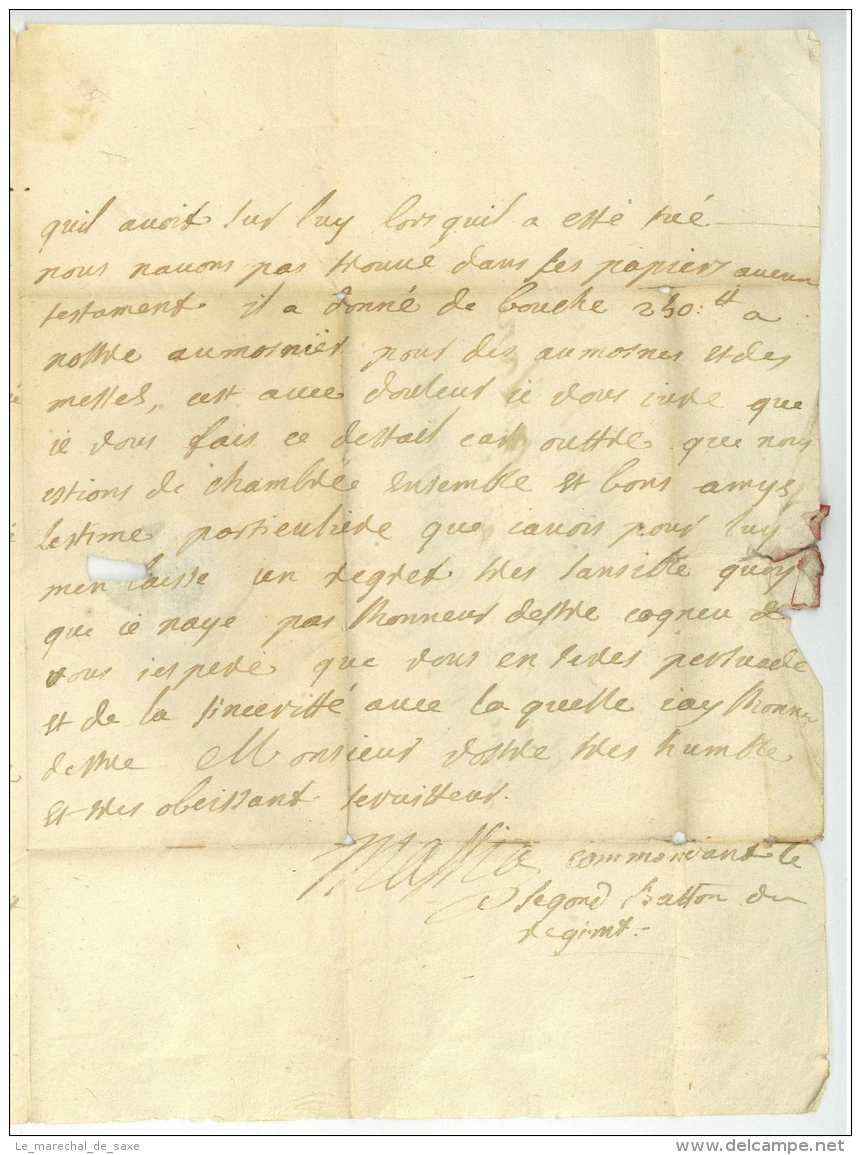 quil avoit sur luy lors quil a esté tué
nous navons pas trouvé dans ses papiers aucun
testament il a donné de bouche 250:tt a
nostre aumosnier pour des aumosnes et des
messes, cest avec douleur ie vous iure que
ie vous fais ce destail car outtre que nous
estions de chambrée ensemble et bons amys
lestime particuliere que iavois pour luy
men laisse un regret tres sansible quoy
que ie naye pas lhonneur destre cogneu de
vous iespere que vous en seres persuade
et de la sinceritté avec la quelle iay lhonneur
destre Monsieur vostre tres humble
et tres obeissant servitteur.
commendant le
segond batton du
regimt.
Le_marechal_de_saxe
delcampe.net